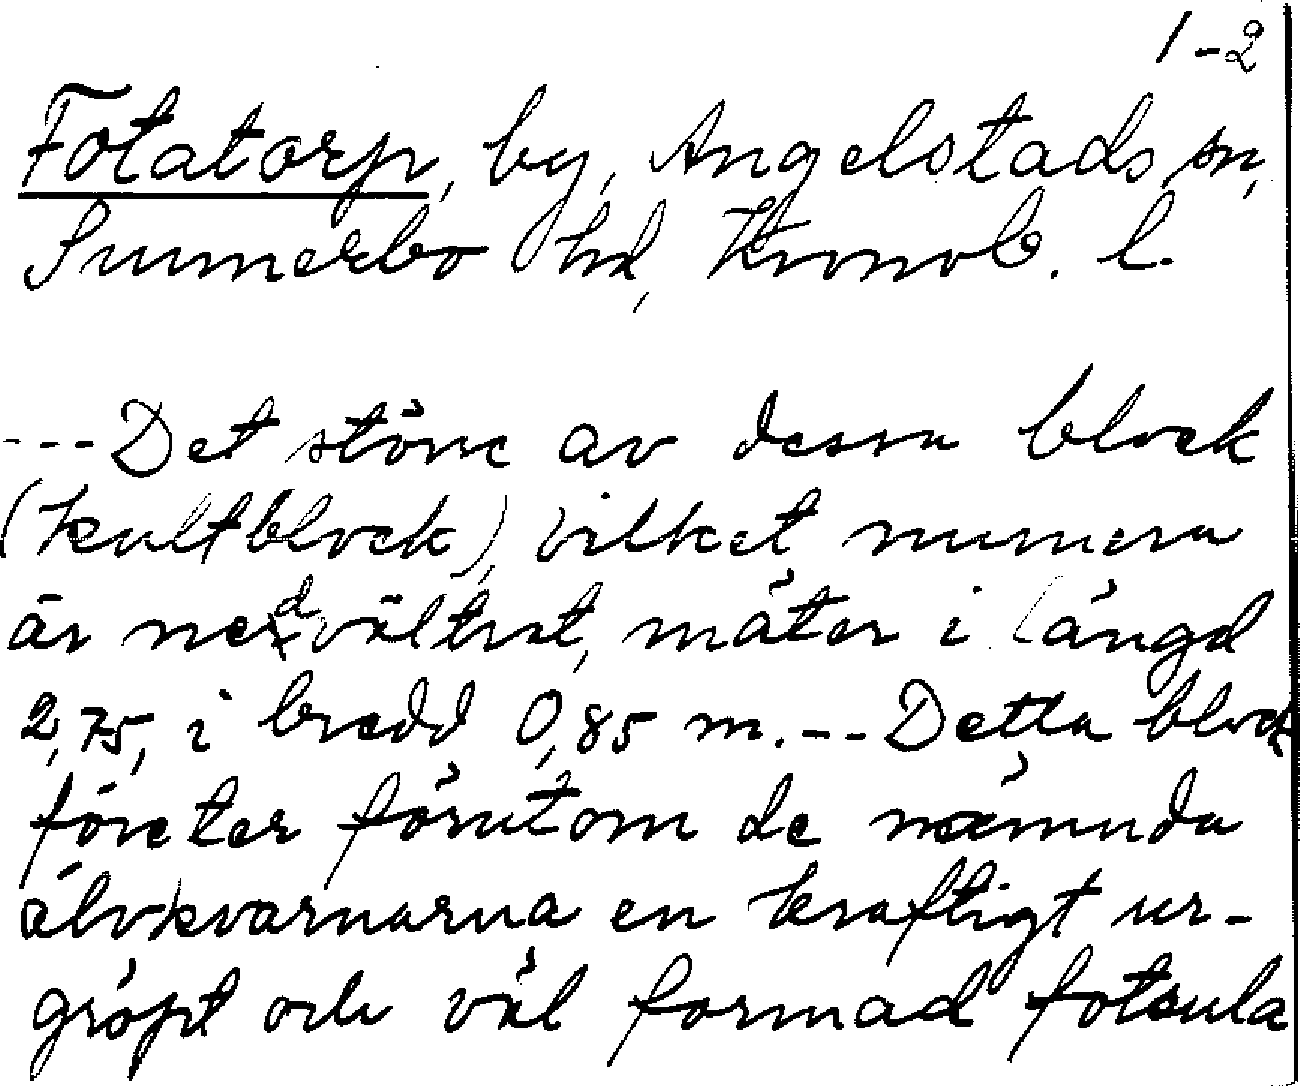 1-2
Fotatorp, by, Angelstads sn,
Sunnerbo hd, Kronob. l.
--- Det större av dessa block
(kultblock), vilket numera
är nedvältrat, mäter i längd
2,75, i bredd 0,85 m. --- Detta block
företer förutom de nämnda
älvkvarnarna en kraftigt ur-
gröpt och väl formad fotsula